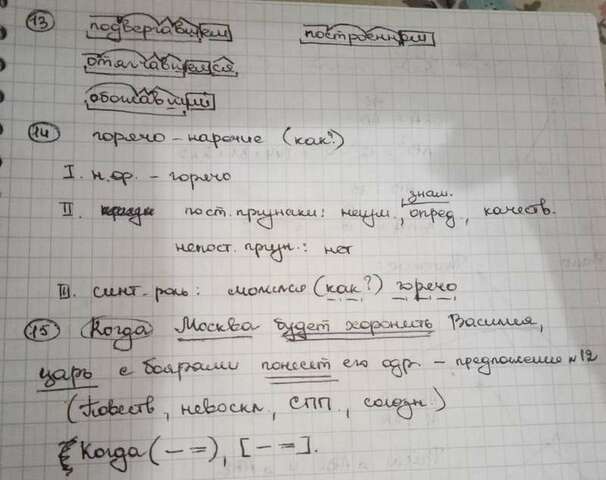 13 подвергавшем построенном
отличавшемся
обожавшими
14 горячо - наречие (как?)
I. н.ф. - горячо
знам.
II. пост. признаки: неизм., опред., качеств.
непост. призн.: нет
III. синт. роль: молился (как?) горячо
15 Когда Москва будет хоронить Василия,
царь с боярами понесёт его одр. - предложение №12
(Повеств., невоскл., СПП, союзн.)
Когда (- =), [- =].